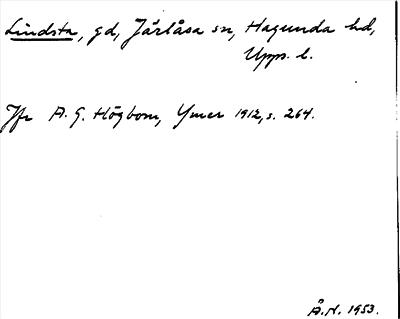 Lindsta, gd, Järlåsa sn, Hagunda hd,
Upps. l.
Jfr A. G. Högbom, Ymer 1912, s. 264.
Å.N. 1953.